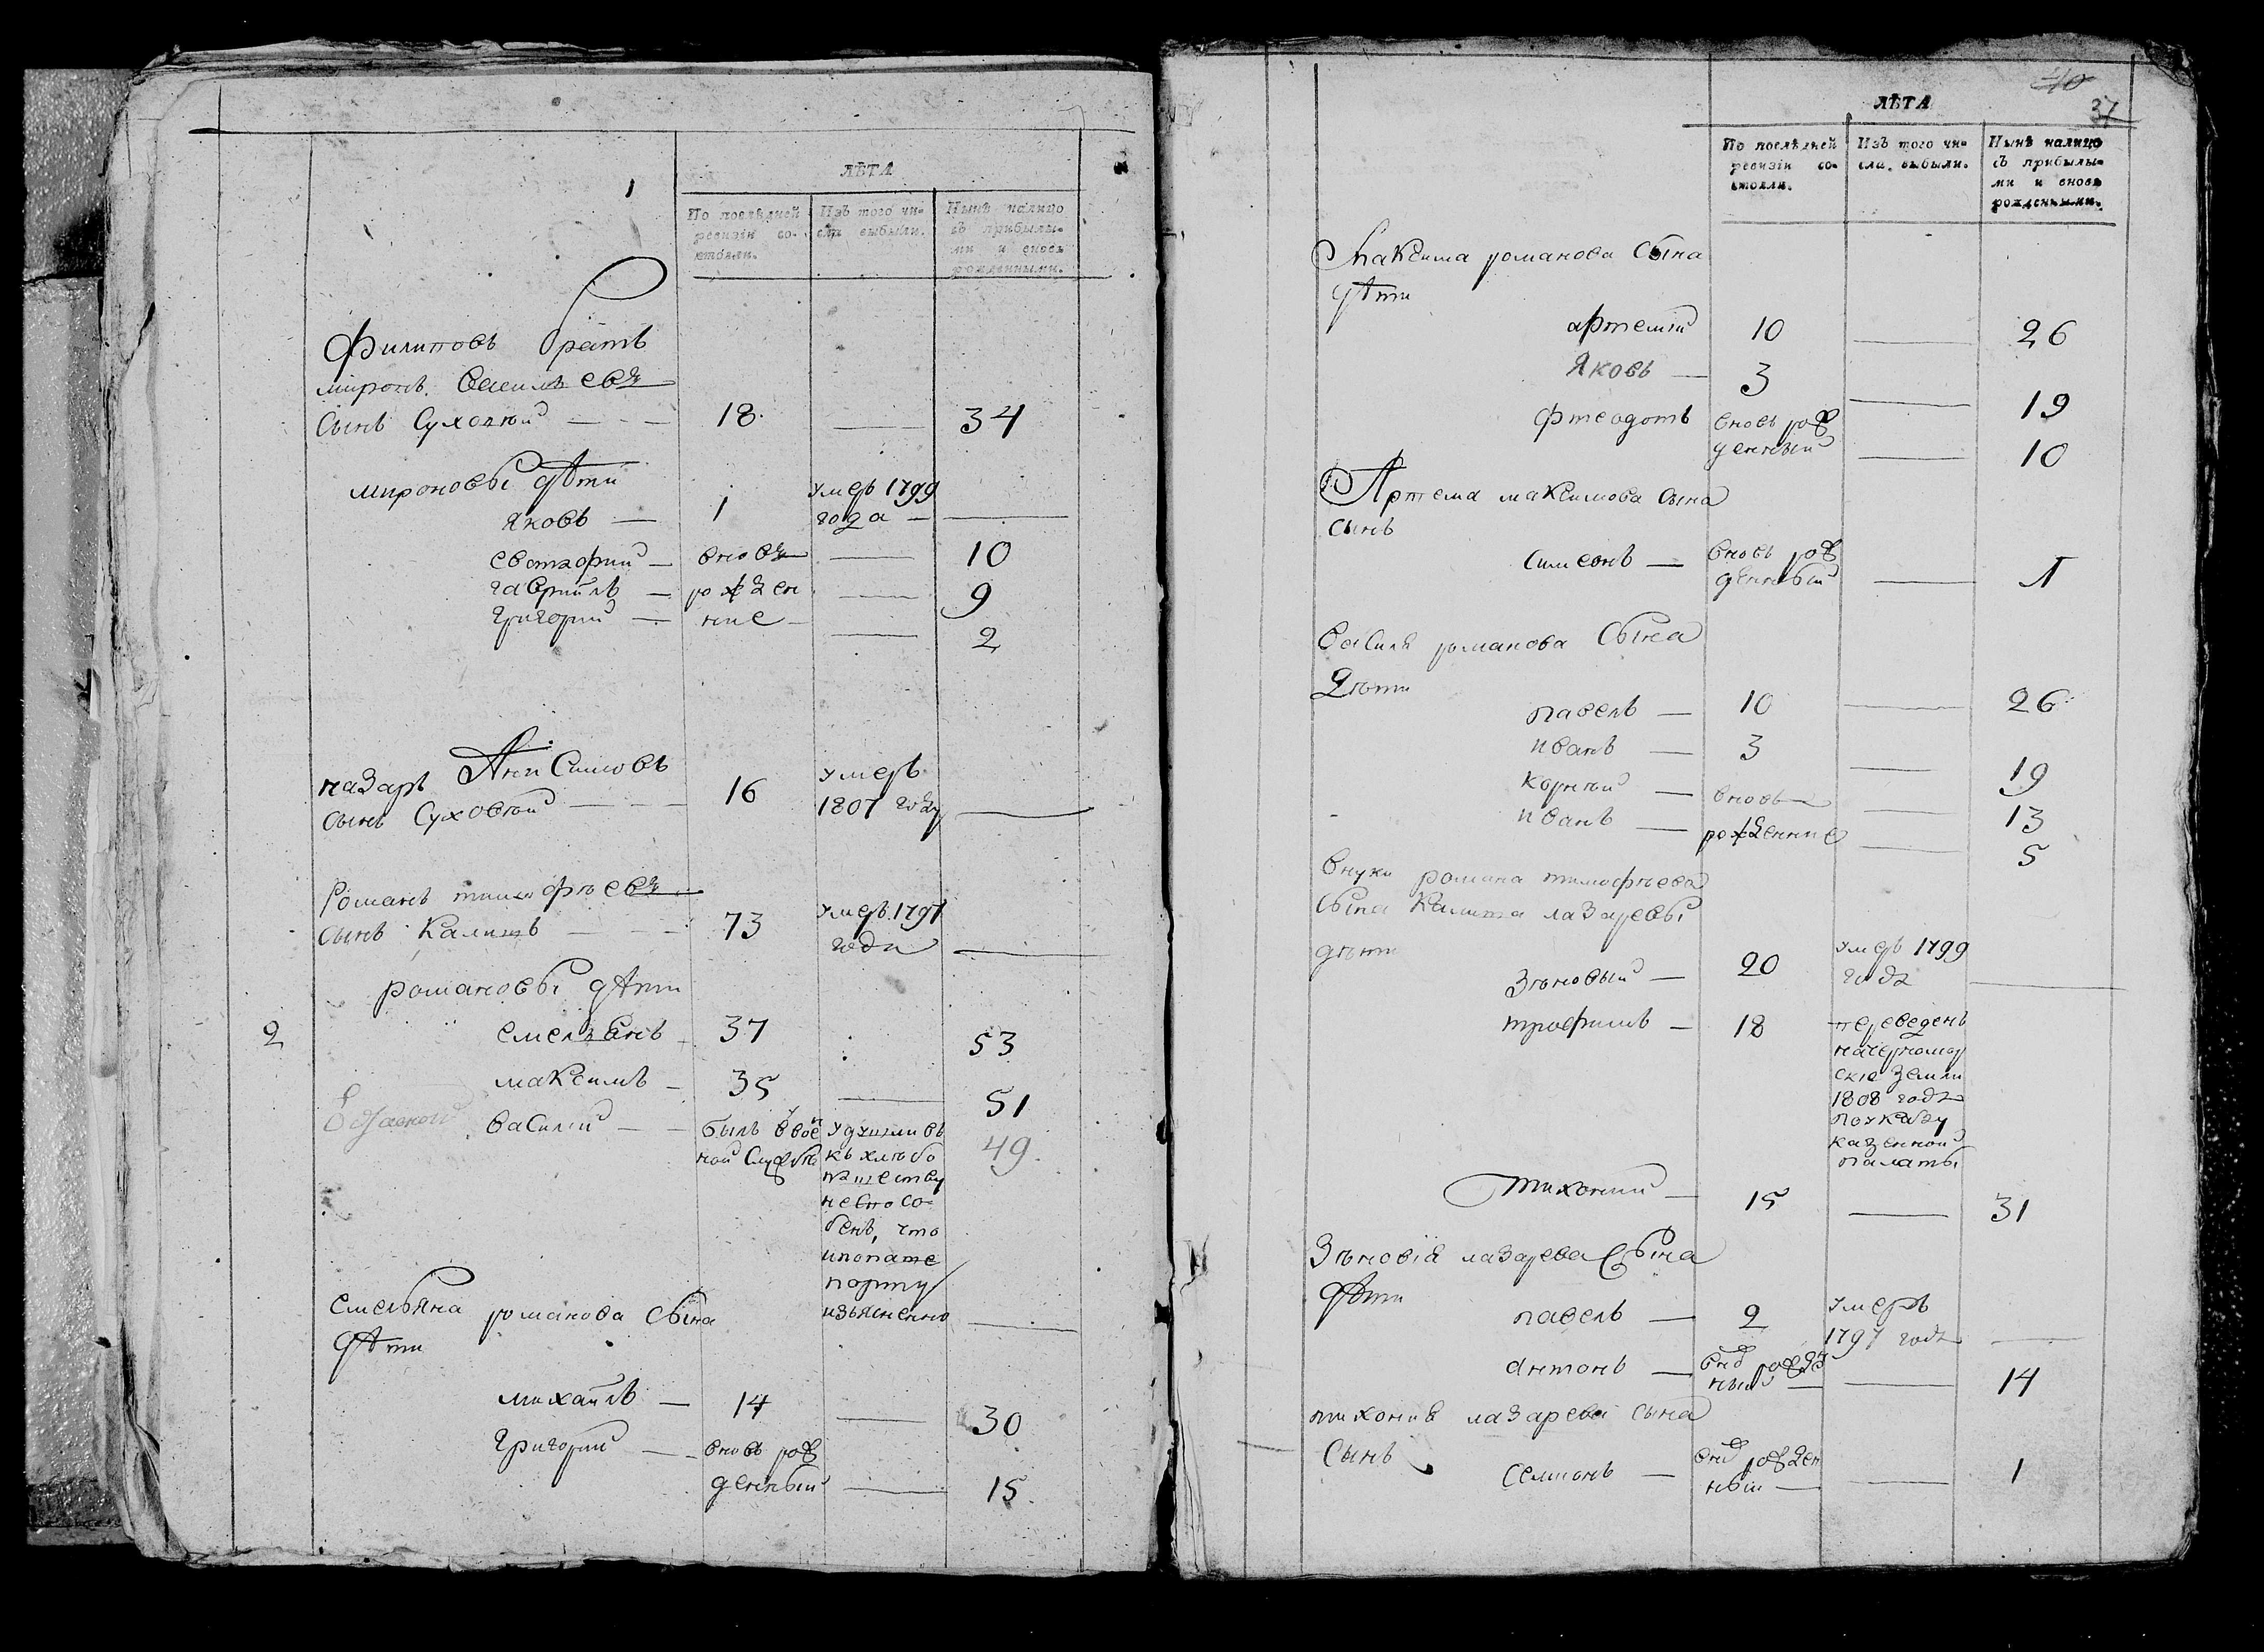 ЛѢТА
По послѣдней ревизіи состояли.
Изъ того числа выбыли.
Нынѣ налицо съ прибылыми и вновь рожденными.
Филиповъ братъ
миронъ васильевъ
сынъ Суховѣй — 18. — 34
мироновы дѣти
яковъ — 1 умеръ 1799 года —
евстафий — вновь — 10
гавриилъ — рожден — 9
григорий — ние — 2
назаръ Анисимовъ
сынъ Суховѣй — 16 умеръ 1807 году —
Романъ тимофѣевъ
сынъ Калита — 73 умеръ 1797 года —
романовы дѣти
2 емельянъ 37 53
максимъ — 35 — 51
василий — былъ в воен
ной службѣ 49.
к хлѣбо
пашеству
неспосо
бенъ, что
и по пате
порту
изъяснено —
емельяна романова сына
дѣти
михаилъ — 14 — 30
григорий — вновь рож
денный — 15.
40
37
ЛѢТА
По послѣдней ревизіи состояли.
Изъ того числа выбыли.
Нынѣ налицо съ прибылыми и вновь рожденными.
Максима романова сына
дѣти
артемий 10 — 26
яковъ — 3 — 19
феодотъ вновь рож
денный — 10
Артема максимова сына
сынъ
симеонъ — вновь рож
денный — 1
василя романова сына
дѣти
павелъ — 10 — 26
иванъ — 3 — 19
корнѣй — вновь — 13
иванъ — рожденние — 5
внуки романа тимофѣева
сына Калита лазаревы
дѣти
Зѣновый — 20 умеръ 1799
года —
трофимъ — 18 переведенъ
на черномор
ские земли
1808 года
по указу
казенной
палаты
тихоний — 15 — 31
Зѣновія лазарева сына
дѣти
павелъ — 2 умеръ
1797 года —
антонъ — внов рожден
ный — 14
тихония лазарева сына
сынъ
семионъ — внов рожден
ный — 1